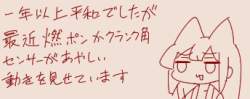 一年以上平和でしたが
最近燃ポンかクランク角
センサーがあやしい
動きを見せています